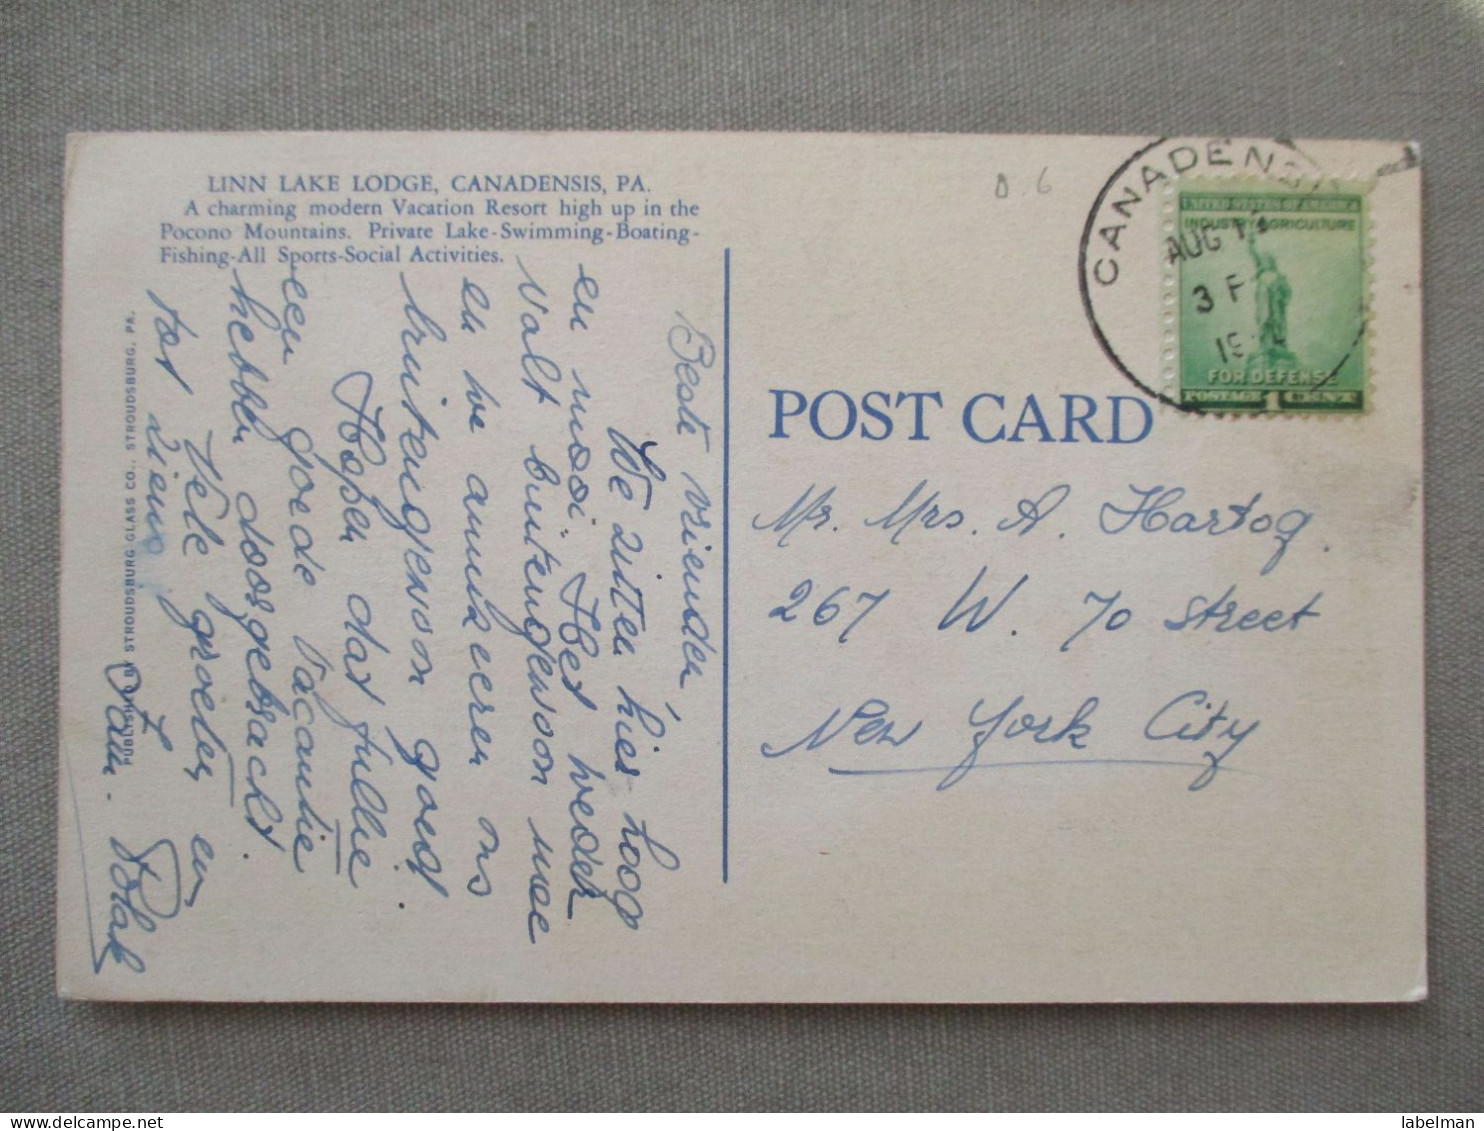 LINN LAKE LODGE, CANADENSIS, PA.
A charming modern Vacation Resort high up in the
Pocono Mountains. Private Lake-Swimming-Boating-
Fishing-All Sports-Social Activities.
Beste vrienden
We zitten hier hoog
en mooi. Het weder
valt buitengewoon mee
en we amuseeren ons
buitengewoon goed.
Hopen dat jullie
een goede vacantie
hebben doorgebracht
Vele groeten en
tot ziens
Fam. Polak
PUBLISHED BY STROUDSBURG GLASS CO., STROUDSBURG, PA.
D.6
CANADENSIS
AUG
3 P
19
UNITED STATES OF AMERICA
INDUSTRY AGRICULTURE
FOR DEFENSE
POSTAGE 1 CENT
POST CARD
Mr. Mrs. A. Hartog.
267 W. 70 street
New York City
labelman